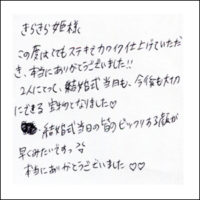 きらきら姫様
この度はとてもステキでカワイク仕上げていただ
き、本当にありがとうございました!!
2人にとって、結婚式当日も、今後も大切
にできる宝物となりました♡
結婚式当日の皆のビックリする顔が
早くみたいですっ
本当にありがとうございました♡♡